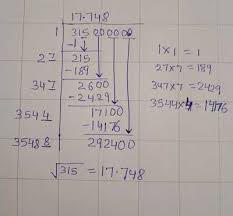 17.748
1 315000000
-1
27 215
-189
347 2600
-2429
3544 17100
-14176
35488 292400
√315 = 17.748
1×1 = 1
27×7 = 189
347×7 = 2429
3544×4 = 1476